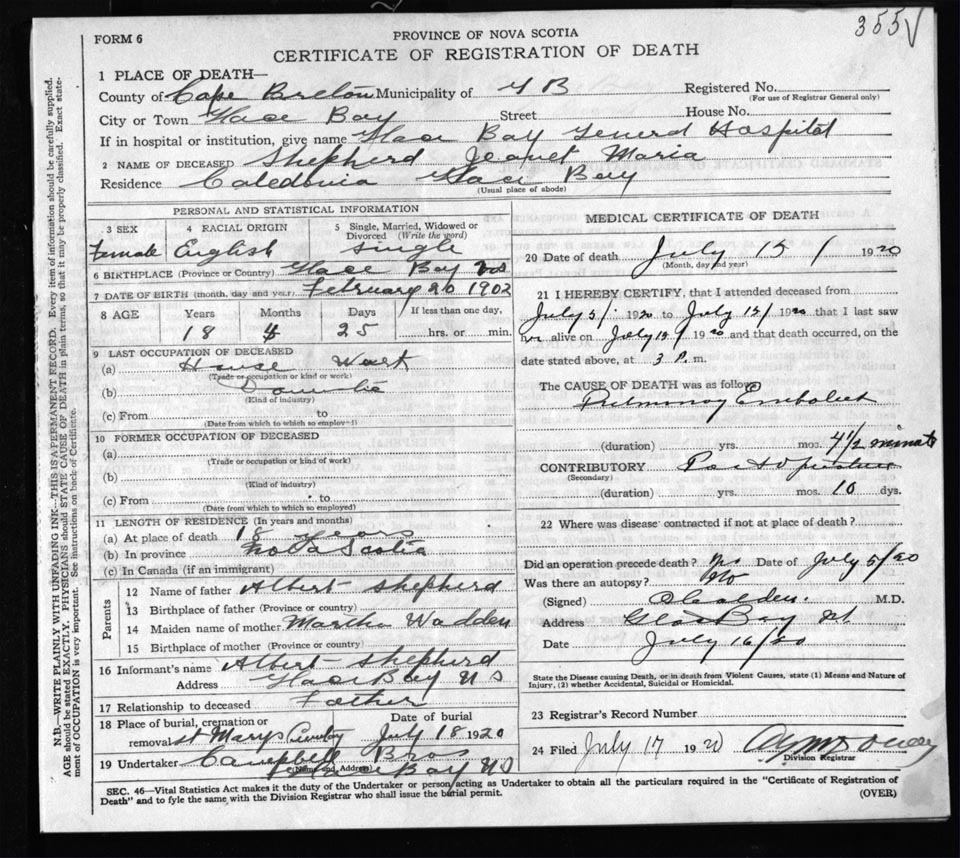 355
FORM 6
PROVINCE OF NOVA SCOTIA
CERTIFICATE OF REGISTRATION OF DEATH
N.B.—WRITE PLAINLY WITH UNFADING INK—THIS IS A PERMANENT RECORD. Every item of information should be carefully supplied.
AGE should be stated EXACTLY. PHYSICIANS should STATE CAUSE OF DEATH in plain terms, so that it may be properly classified. Exact state-
ment of OCCUPATION is very important. See instructions on back of Certificate.
1 PLACE OF DEATH—
County of Cape Breton Municipality of Registered No.
(For use of Registrar General only)
City or Town Glace Bay Street House No.
If in hospital or institution, give name Glace Bay General Hospital
2 NAME OF DECEASED Shepherd Jeanet Maria
Residence Caledonia Glace Bay
(Usual place of abode)
PERSONAL AND STATISTICAL INFORMATION
3 SEX 4 RACIAL ORIGIN 5 Single, Married, Widowed or Divorced (Write the word)
Female English Single
6 BIRTHPLACE (Province or Country) Glace Bay NS
7 DATE OF BIRTH (month, day and year) February 20 1902
8 AGE Years Months Days If less than one day,
18 4 25 hrs. or min.
9 LAST OCCUPATION OF DECEASED
(a) House Work
(Trade or occupation or kind of work)
(b) Domestic
(Kind of industry)
(c) From to
(Date from which to which so employed)
10 FORMER OCCUPATION OF DECEASED
(a)
(Trade or occupation or kind of work)
(b)
(Kind of industry)
(c) From to
(Date from which to which so employed)
11 LENGTH OF RESIDENCE (In years and months)
(a) At place of death 18 years
(b) In province Nova Scotia
(c) In Canada (if an immigrant)
Parents
12 Name of father Albert Shepherd
13 Birthplace of father (Province or country)
14 Maiden name of mother Martha Wadden
15 Birthplace of mother (Province or country)
16 Informant's name Albert Shepherd
Address Glace Bay NS
17 Relationship to deceased Father
18 Place of burial, cremation or Date of burial
removal St Marys July 18 1920
19 Undertaker Campbell Bros
(Name and Address) Glace Bay NS
MEDICAL CERTIFICATE OF DEATH
20 Date of death July 15 1920
(Month, day and year)
21 I HEREBY CERTIFY, that I attended deceased from
July 5 1920 to July 15 1920 that I last saw
her alive on July 15 1920 and that death occurred, on the
date stated above, at 3 P. m.
The CAUSE OF DEATH was as follows
Pulmonary
(duration) yrs. mos. 4 1/2 minute
CONTRIBUTORY
(Secondary)
(duration) yrs. mos. 10 dys.
22 Where was disease contracted if not at place of death?
Did an operation precede death? Date of July 5/20
Was there an autopsy? No
(Signed) M.D.
Address Glace Bay
Date July 16/20
State the Disease causing Death, or in death from Violent Causes, state (1) Means and Nature of
Injury, (2) whether Accidental, Suicidal or Homicidal.
23 Registrar's Record Number
24 Filed July 17 1920
Division Registrar
SEC. 46—Vital Statistics Act makes it the duty of the Undertaker or person acting as Undertaker to obtain all the particulars required in the "Certificate of Registration of
Death" and to fyle the same with the Division Registrar who shall issue the burial permit.
(OVER)